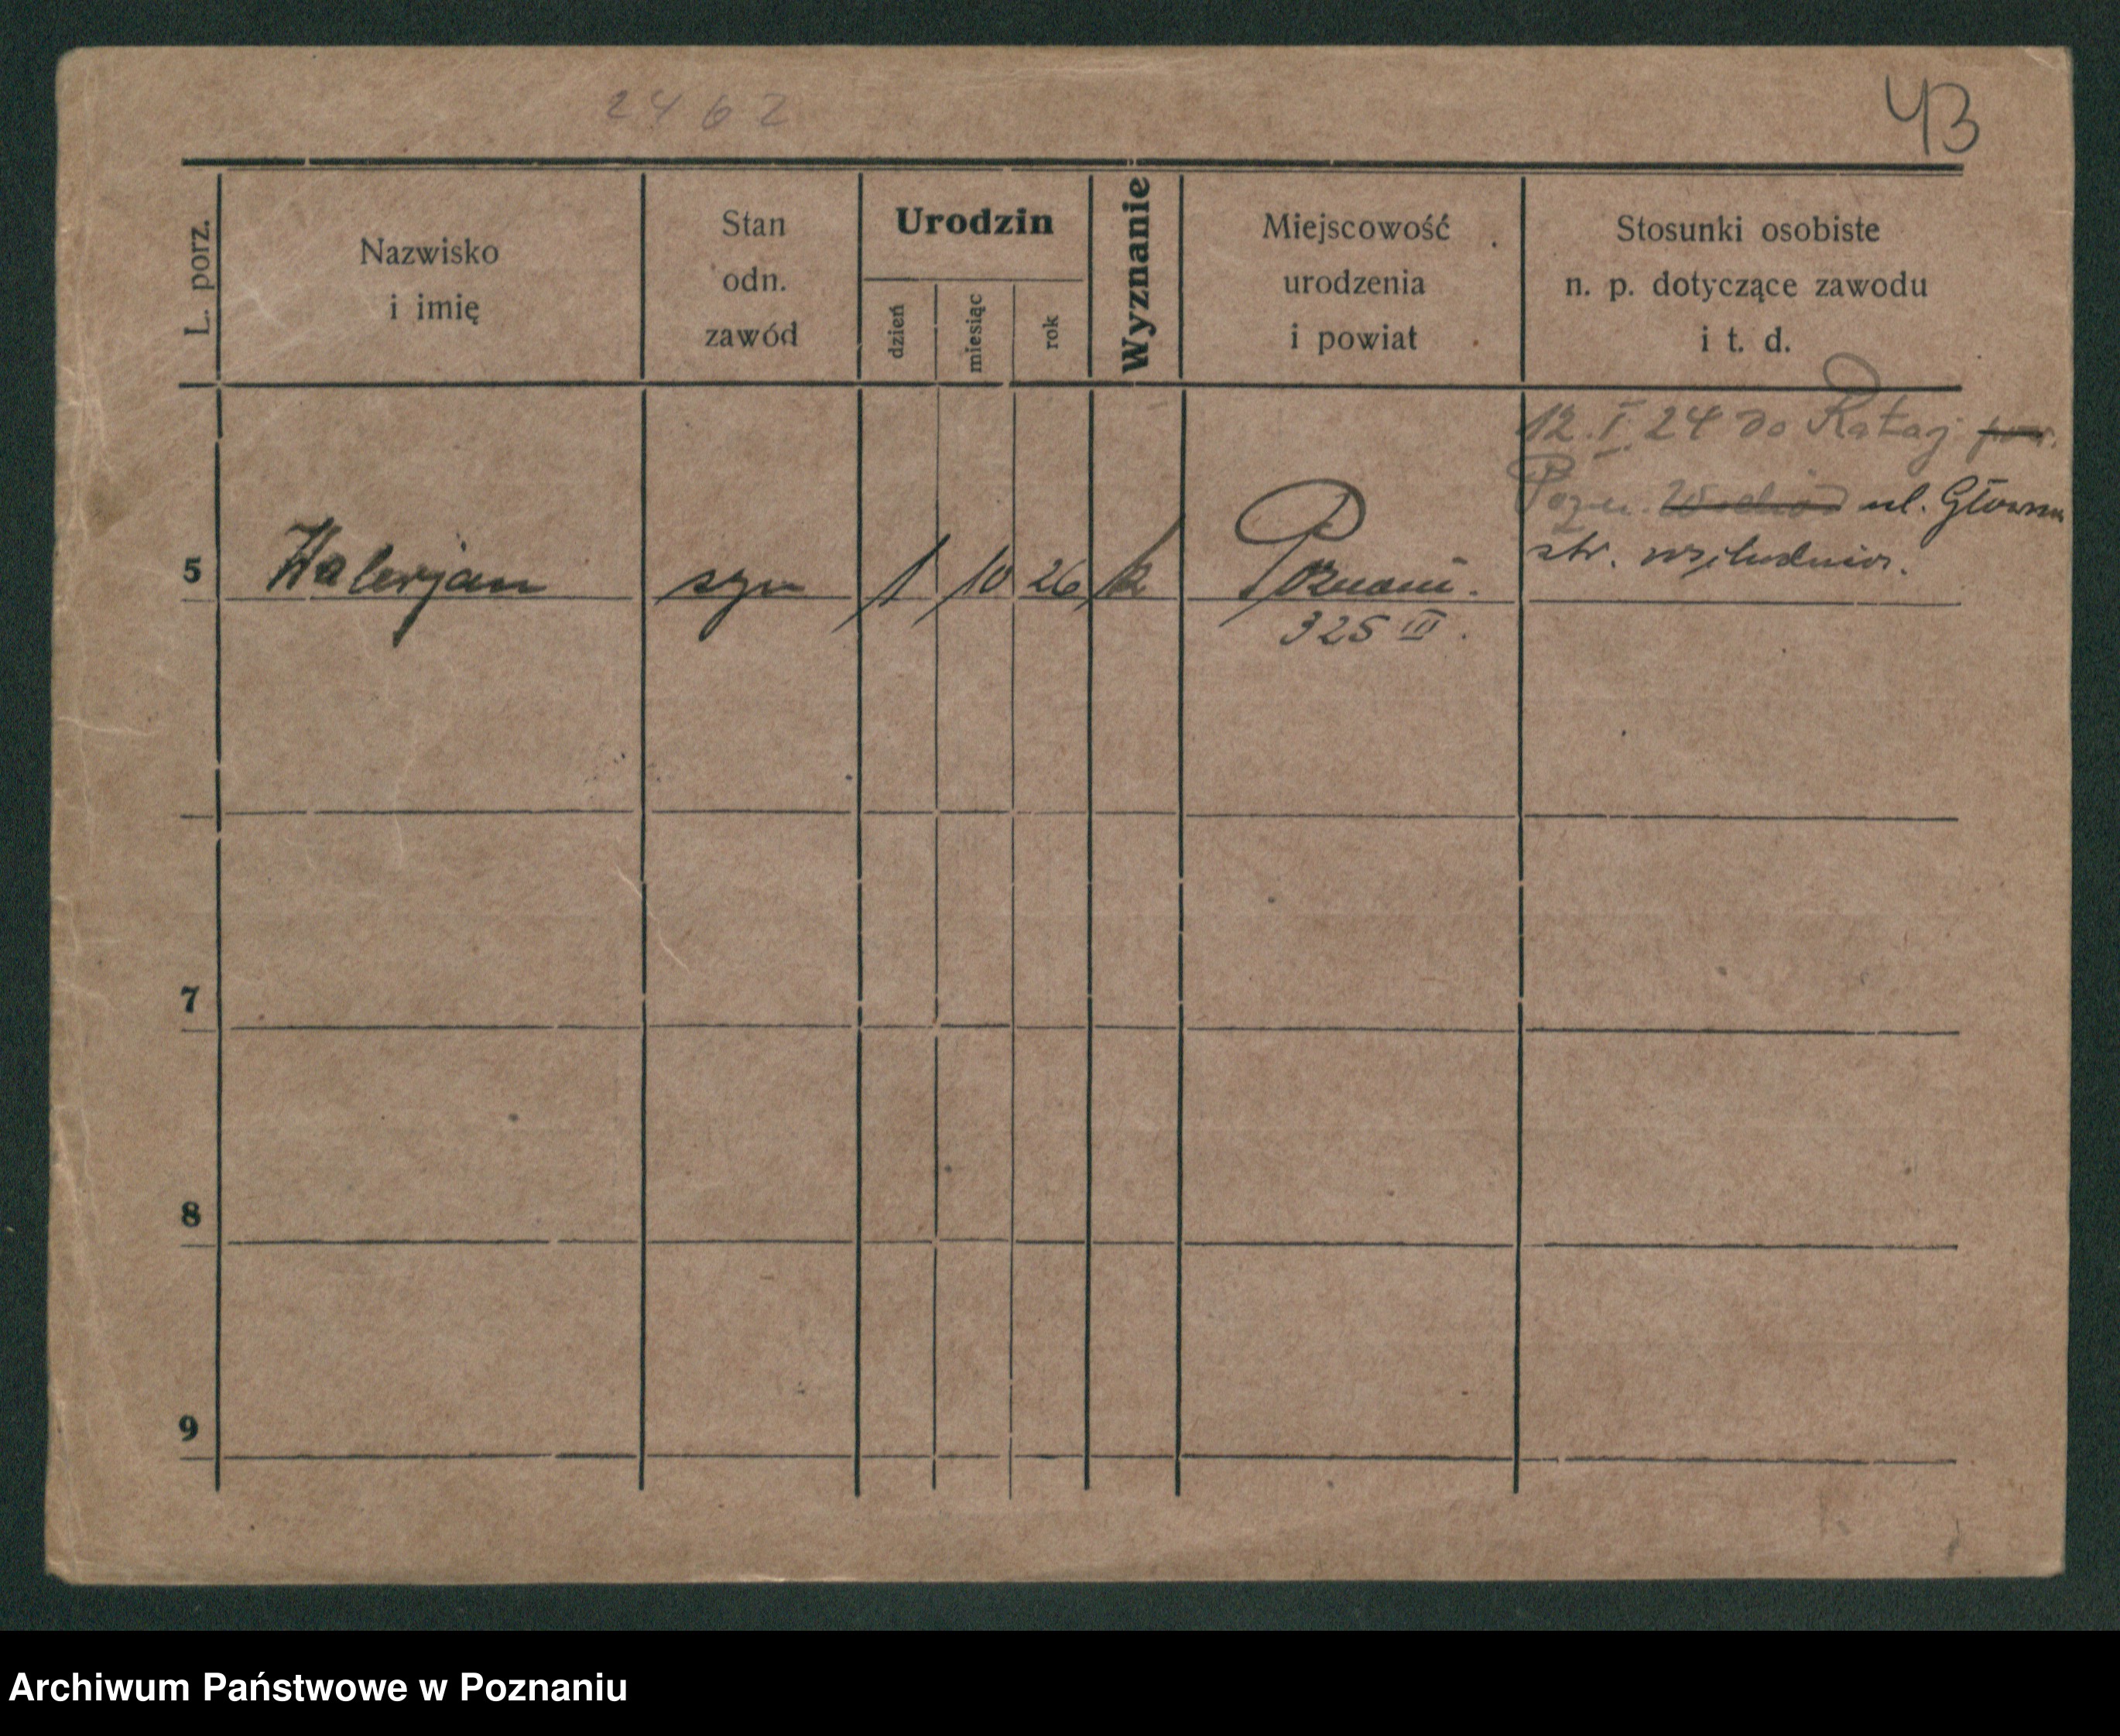 2462
43
L. porz.
Nazwisko
i imię
Stan
odn.
zawód
Urodzin
dzień
miesiąc
rok
Wyznanie
Miejscowość
urodzenia
i powiat
Stosunki osobiste
n. p. dotyczące zawodu
i t. d.
12. I. 24 do Rataj
Pozn. ul. Główna
str.
5 Walerjan syn 1 10 26 k Poznań.
325 III.
7
8
9
Archiwum Państwowe w Poznaniu